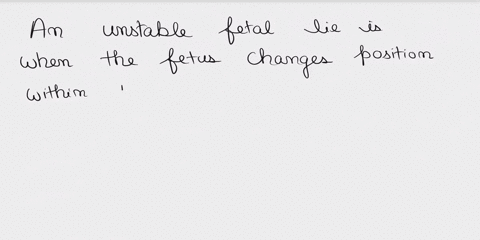 An unstable fetal lie is
when the fetus changes position
within